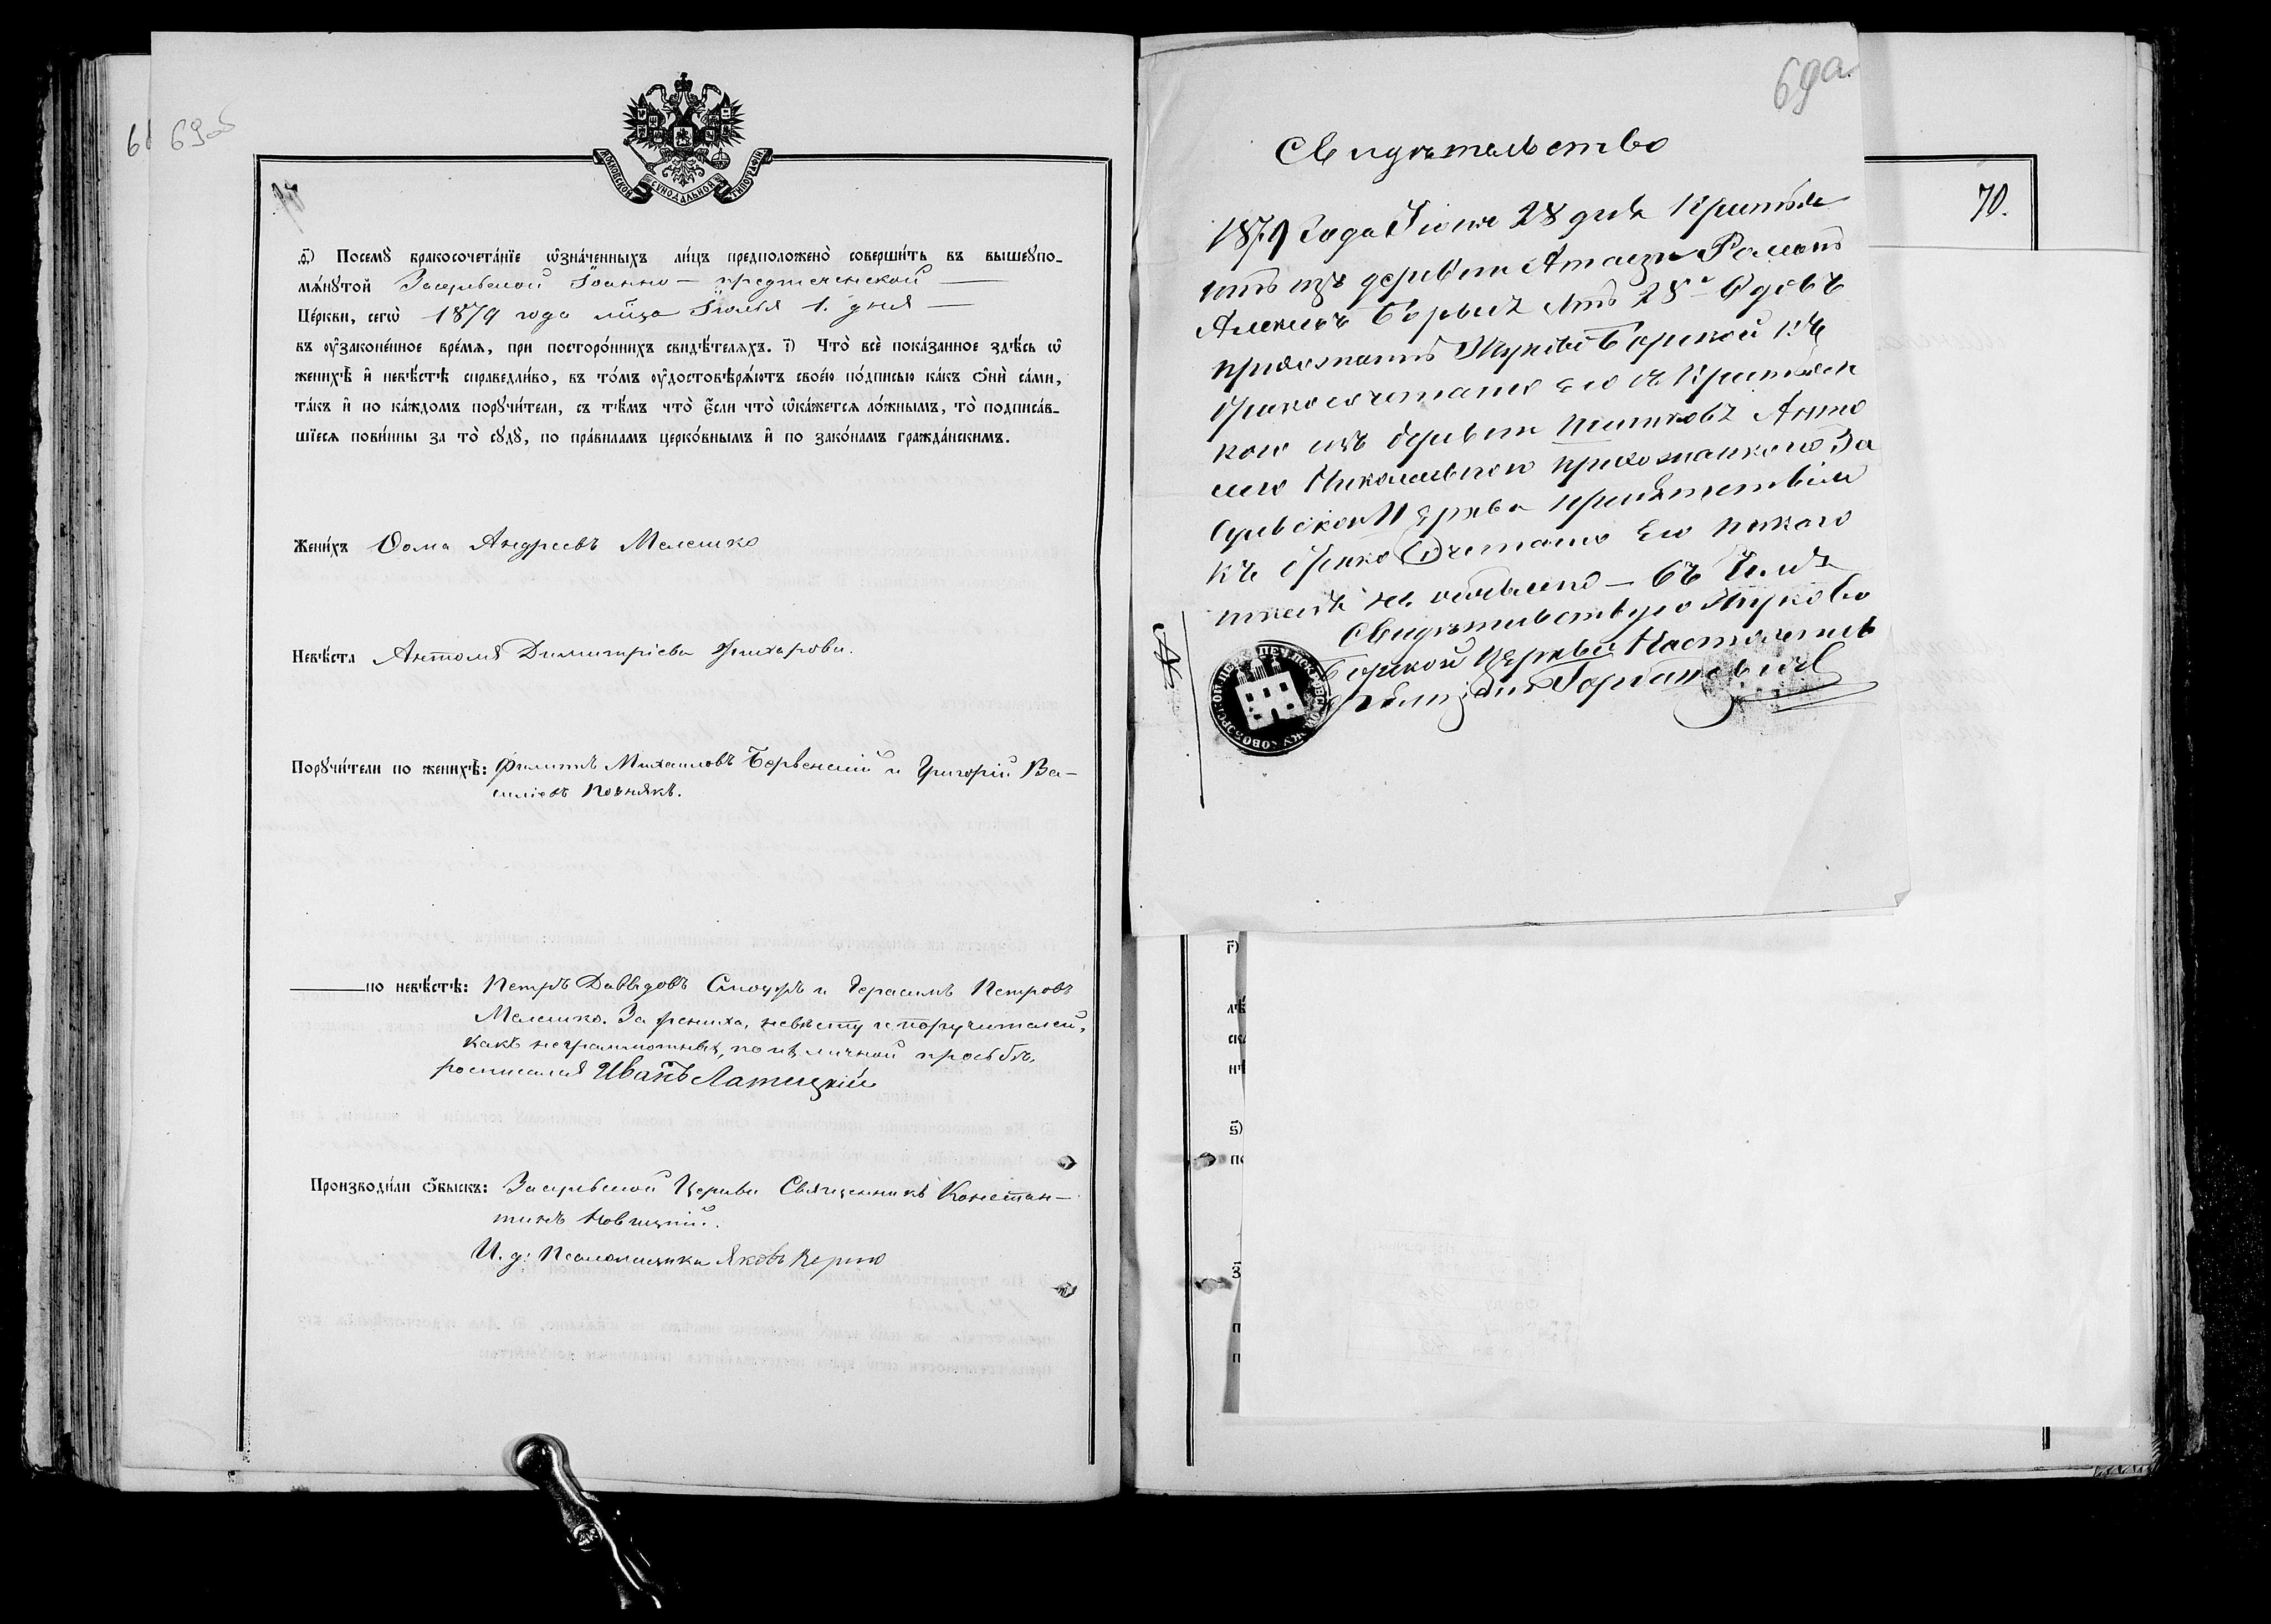 69об
МОСКОВСКОЙ СѴНОДАЛЬНОЙ ТИПОГРАФІИ
д҃) Посемꙋ̀ бракосочета́нїе ѡ҆зна́ченныхъ ли́цъ предположено̀ соверши́ть въ вышеꙋпо-
мѧ́нꙋтой Засульской Іоанно-предтеченской
Це́ркви, сегѡ̀ 1879 года м-ца Іюля 1. дня
въ ᲂу҆зако́ненное вре́мѧ, при посторо́ннихъ свидѣ́телѧхъ. і҃) Что̀ всѐ пока́занное здѣ́сь ѡ҆
женихѣ̀ и҆ невѣ́стѣ справедли́во, въ то́мъ ᲂу҆достовѣрѧ́ютъ свое́ю по́дписью ка́къ ѻ҆нѝ са́ми,
та́къ и҆ по ка́ждомъ порꙋчи́тели, съ тѣ́мъ что̀ є҆́сли что̀ ѡ҆ка́жетсѧ ло́жнымъ, то̀ подписа́в-
шїесѧ пови́нны за то̀ сꙋдꙋ̀, по пра́виламъ церко́внымъ и҆ по зако́намъ гражда́нскимъ.
Жени́хъ Ѳома Андреевъ Мелешко
Невѣ́ста Антоля Димитріева
Порꙋчи́тели по женихѣ̀: Филиппъ Михаиловъ и Григорій Ва-
силіевъ Познякъ.
по невѣ́стѣ: Петръ Давыдовъ и Герасимъ Петровъ
Мелешко. За жениха, невѣсту и поручителей,
какъ неграмотныхъ, по их личной просьбѣ,
росписался Иванъ Латицкій
Производи́ли ѻ҆́быскъ: Засульской Церкви Священникъ Констан-
тинъ Новицкій.
И. д: Псаломщика Яковъ
69а.
Свидѣтельство
1879 Года Іюня 28 дня Кристья
нинъ изъ деревни Романъ
Алексѣевъ лѣтъ 28 вдовъ
прихожанинъ Жуково Борской къ
бракосочетанію его съ Кристьян
кою изъ деревни Анто
лею Николаевною прихожанкою За
сульской Церкви препятствія
къ бракосочетанію его никого
не объявлено — въ чемъ
Свидѣтельствую Жуково
Борской Церкви Настоятель
70.